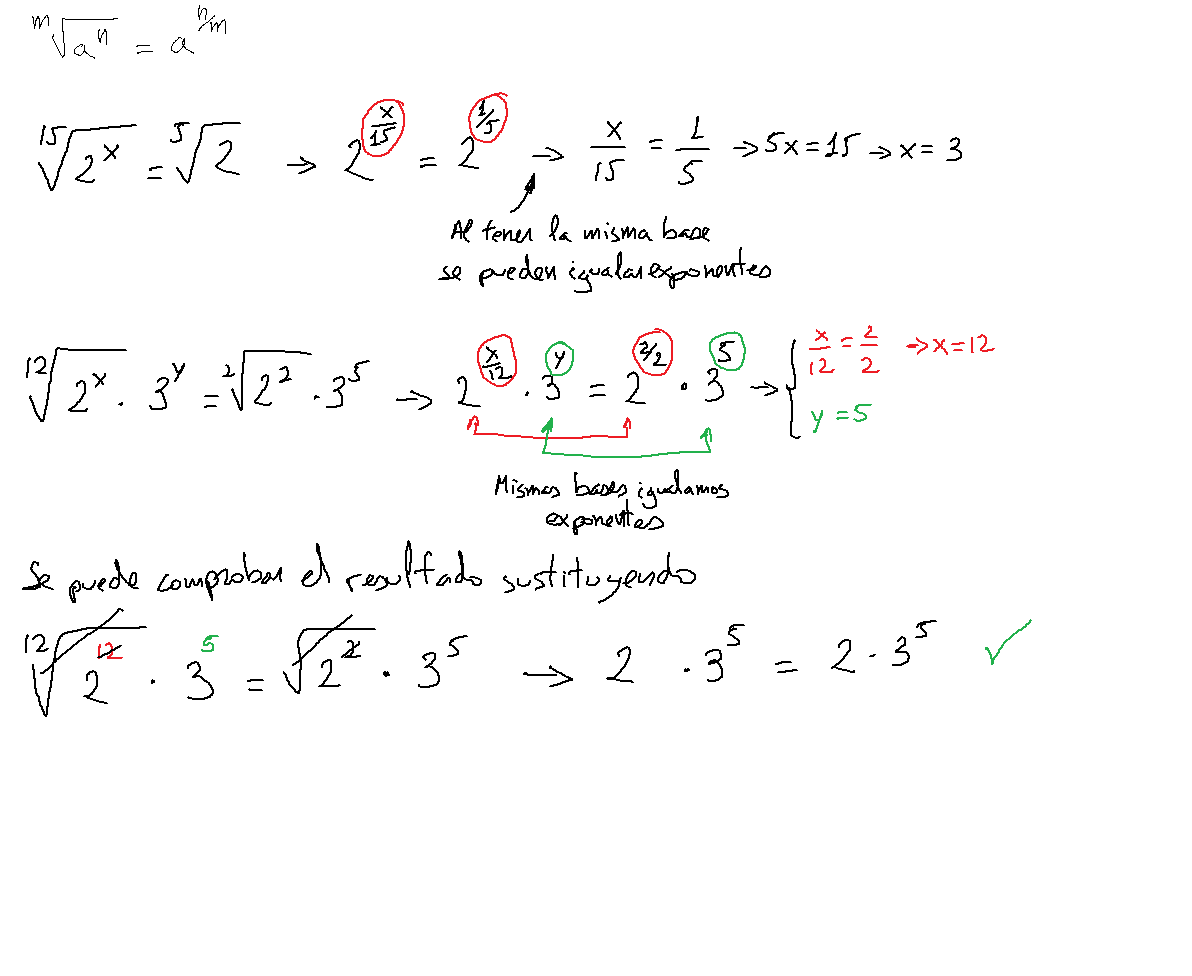 ᵐ√aⁿ = a^(n/m)
¹⁵√2ˣ = ⁵√2 → 2^(x/15) = 2^(1/5) → x/15 = 1/5 → 5x = 15 → x = 3
Al tener la misma base
se pueden igualar exponentes
¹²√2ˣ · 3ʸ = ²√2² · 3⁵ → 2^(x/12) · 3^y = 2^(2/2) · 3^5 → { x/12 = 2/2 → x = 12
y = 5
Mismas bases igualamos
exponentes
Se puede comprobar el resultado sustituyendo
¹²√2¹² · 3⁵ = √2² · 3⁵ → 2 · 3⁵ = 2 · 3⁵ ✓